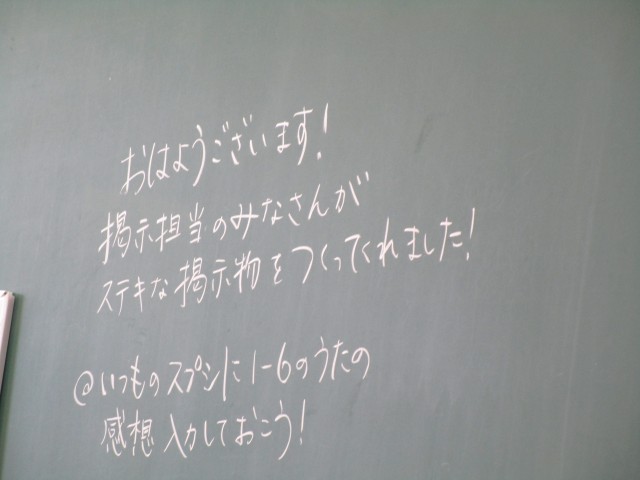 おはようございます!
掲示担当のみなさんが
ステキな掲示物をつくってくれました!
@いつものスプシに1-6のうたの
感想入力しておこう!